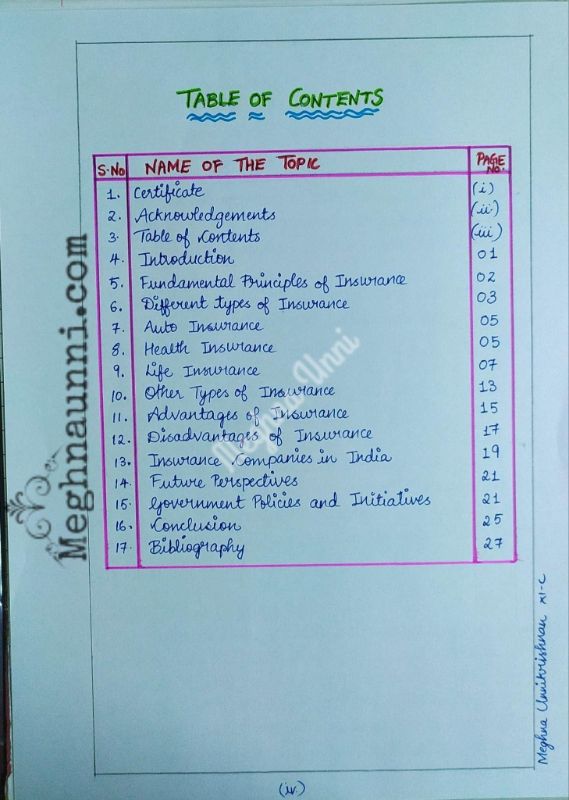 TABLE OF CONTENTS
S.No NAME OF THE TOPIC PAGE No.
1. Certificate (i)
2. Acknowledgements (ii)
3. Table of Contents (iii)
4. Introduction 01
5. Fundamental Principles of Insurance 02
6. Different types of Insurance 03
7. Auto Insurance 05
8. Health Insurance 05
9. Life Insurance 07
10. Other Types of Insurance 13
11. Advantages of Insurance 15
12. Disadvantages of Insurance 17
13. Insurance Companies in India 19
14. Future Perspectives 21
15. Government Policies and Initiatives 21
16. Conclusion 25
17. Bibliography 27
(iv)
Meghna Unnikrishnan XI-C
Meghnaunni.com
Meghna Unni